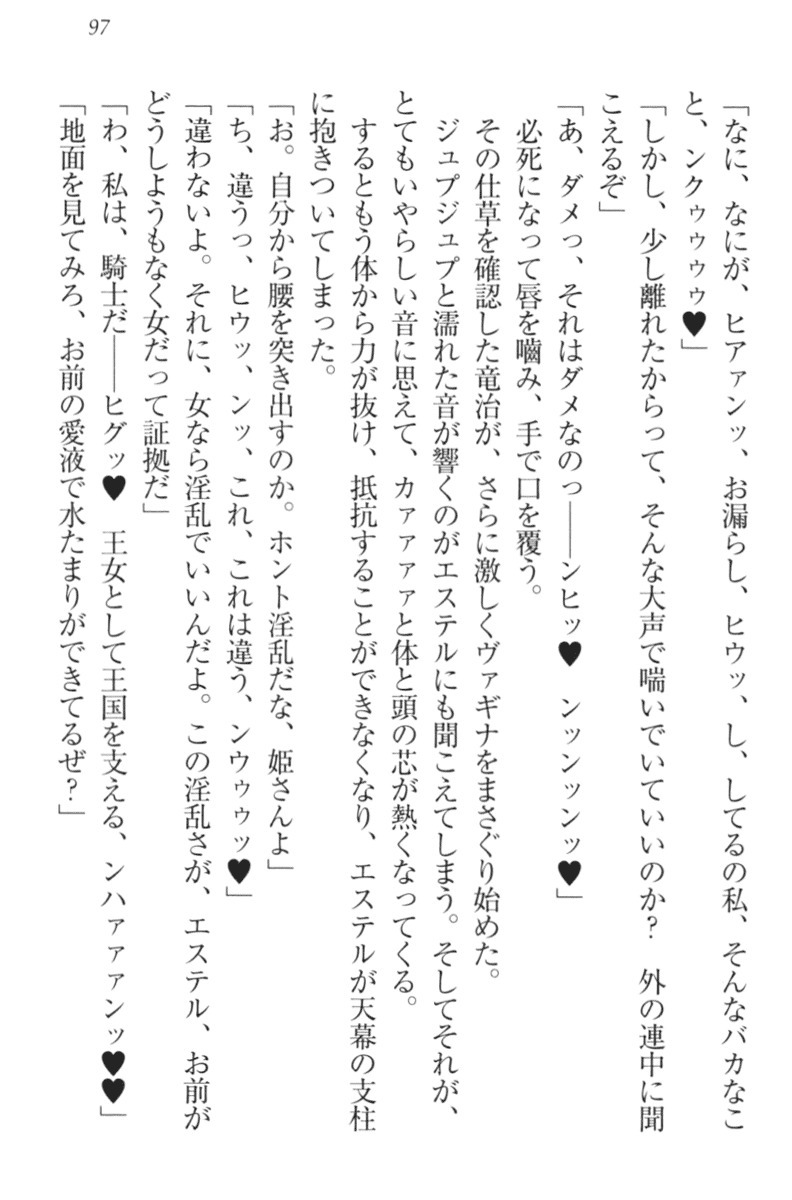 97
「なに、なにが、ヒアァンッ、お漏らし、ヒウッ、し、してるの私、そんなバカなこ
と、ンクゥゥゥゥ♥」
「しかし、少し離れたからって、そんな大声で喘いでいていいのか？　外の連中に聞
こえるぞ」
「あ、ダメっ、それはダメなのっ――ンヒッ♥　ンッンッンッ♥」
必死になって唇を嚙み、手で口を覆う。
その仕草を確認した竜治が、さらに激しくヴァギナをまさぐり始めた。
ジュプジュプと濡れた音が響くのがエステルにも聞こえてしまう。そしてそれが、
とてもいやらしい音に思えて、カァァァァと体と頭の芯が熱くなってくる。
するともう体から力が抜け、抵抗することができなくなり、エステルが天幕の支柱
に抱きついてしまった。
「お。自分から腰を突き出すのか。ホント淫乱だな、姫さんよ」
「ち、違うっ、ヒウッ、ンッ、これ、これは違う、ンウゥゥッ♥」
「違わないよ。それに、女なら淫乱でいいんだよ。この淫乱さが、エステル、お前が
どうしようもなく女だって証拠だ」
「わ、私は、騎士だ――ヒグッ♥　王女として王国を支える、ンハァァァンッ♥♥」
「地面を見てみろ、お前の愛液で水たまりができてるぜ？」